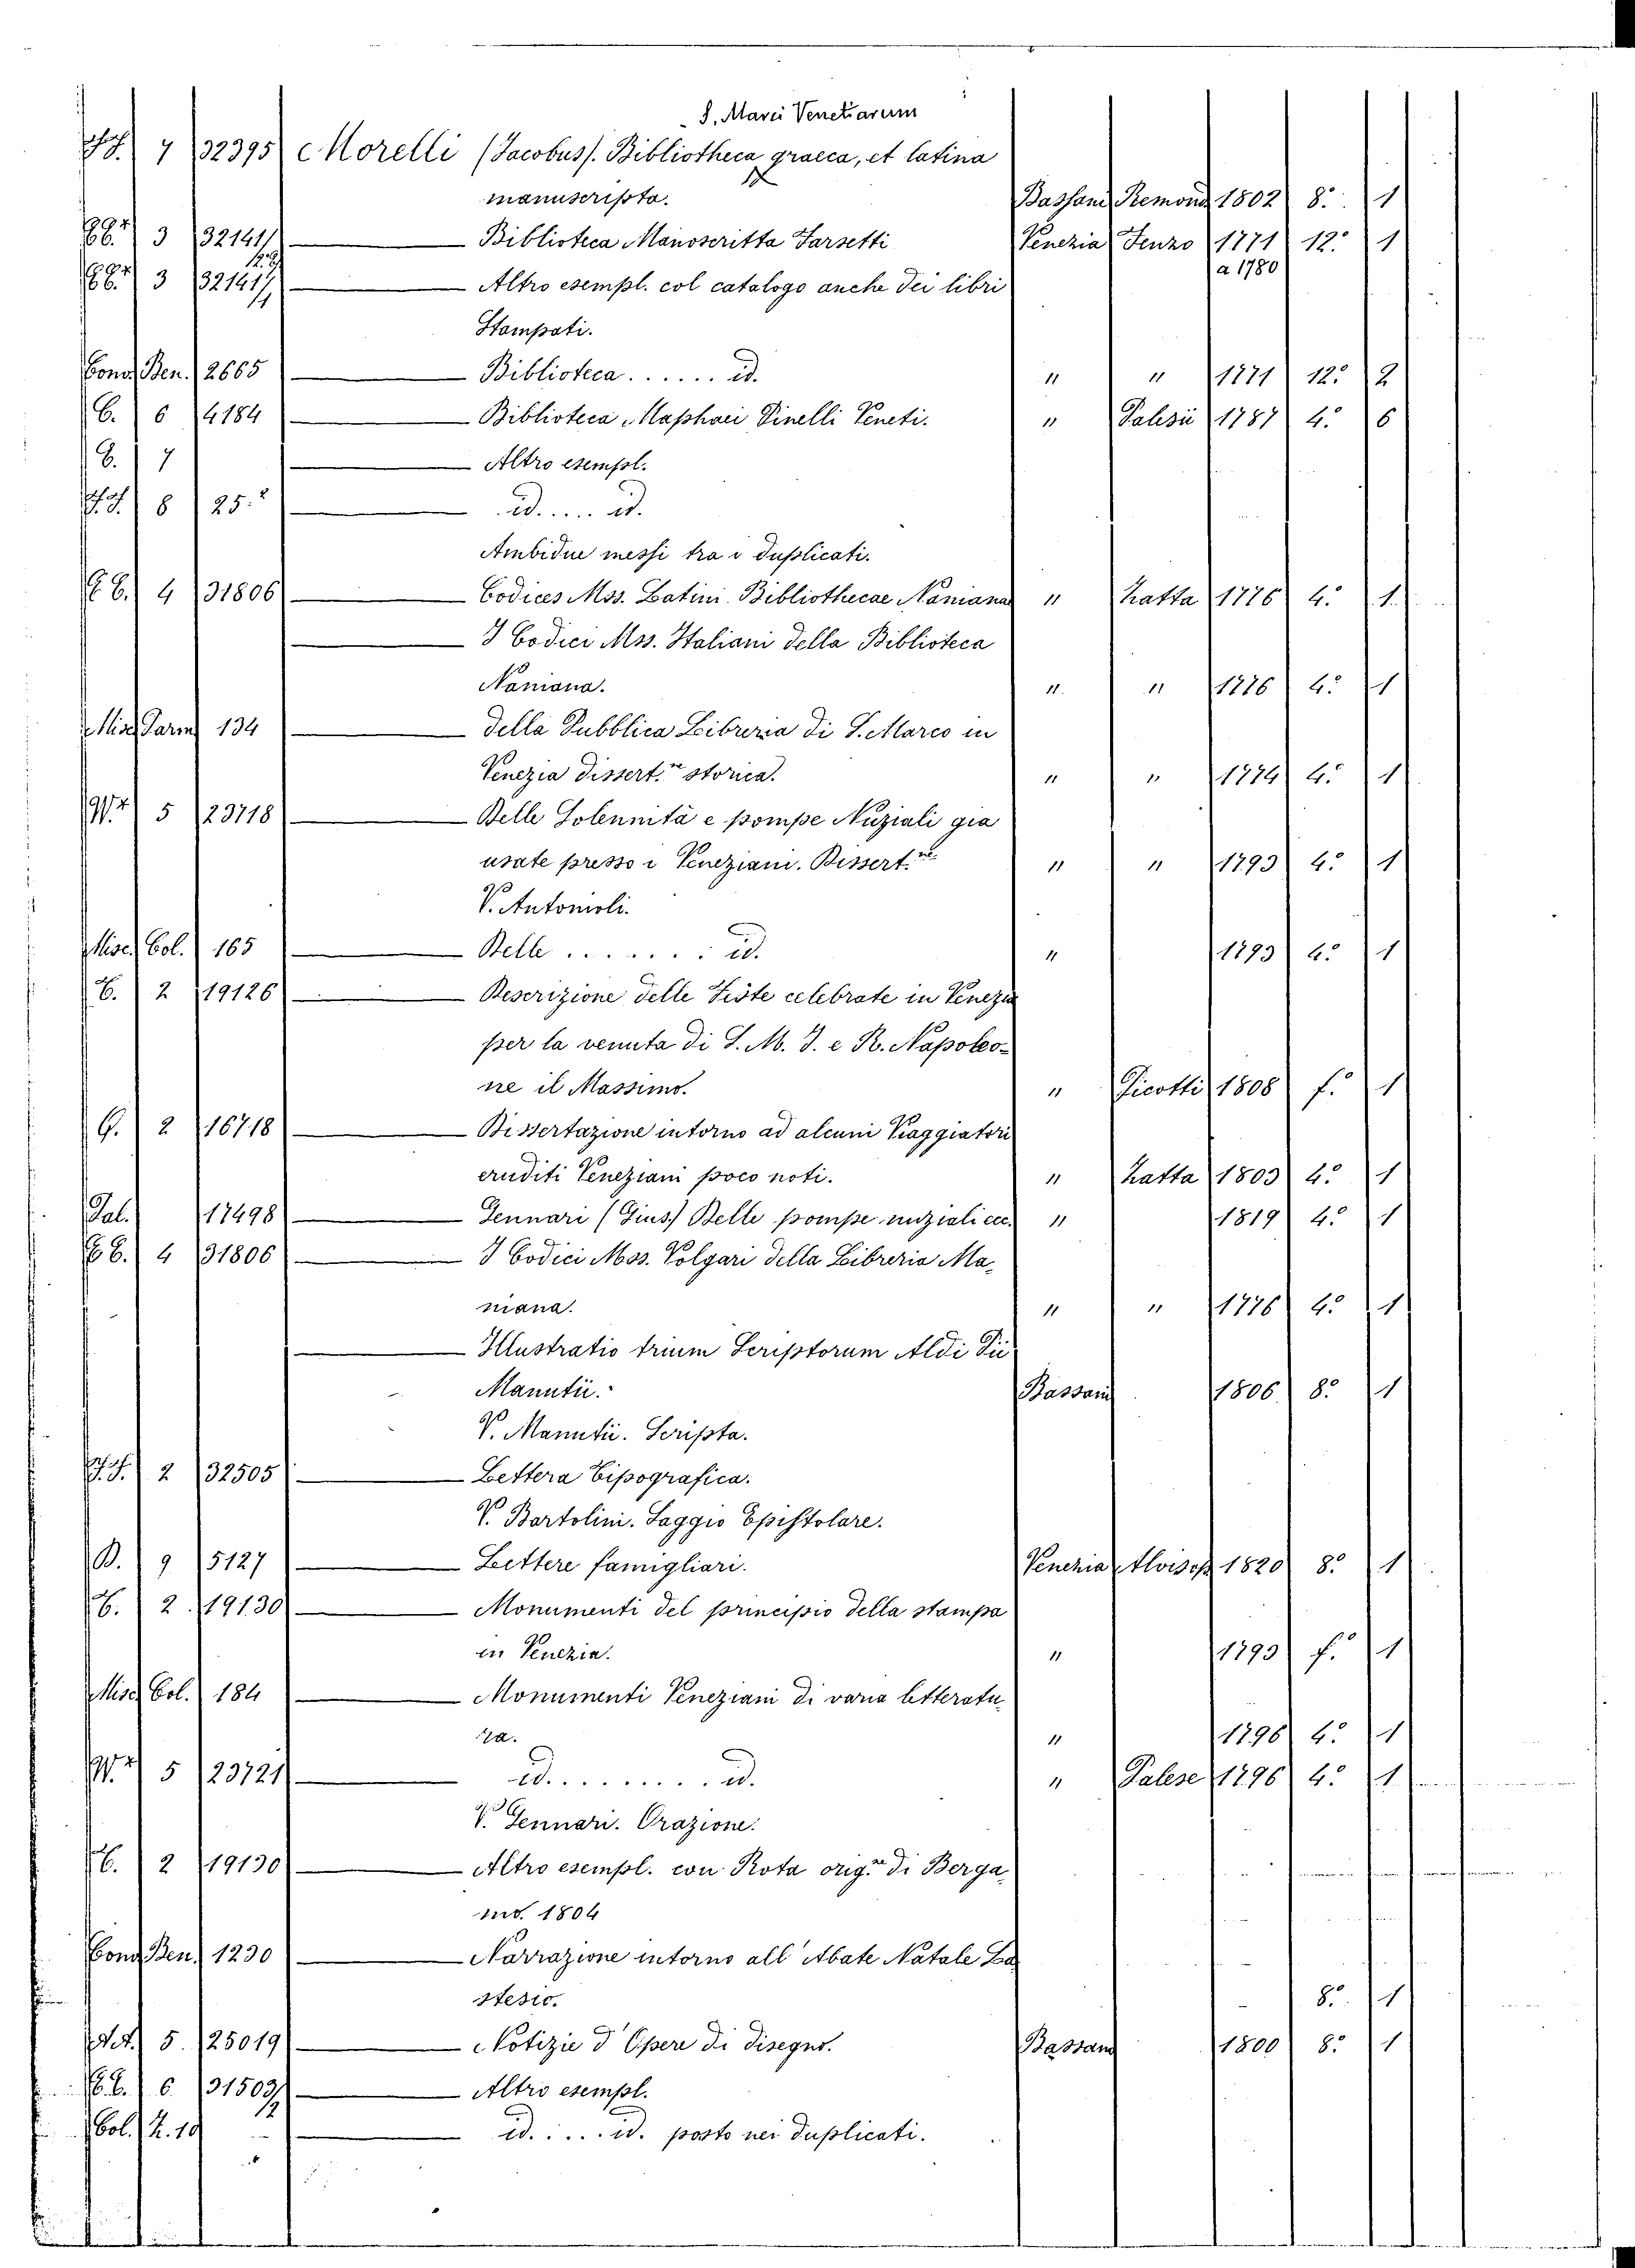 S. Marci Venetiarum
7 32395 Morelli (Jacobus). Bibliotheca graeca, et latina
manuscripta. Bassani Remond 1802 8.° 1
3 32141 Biblioteca Manoscritta Farsetti Venezia Fenzo 1771 12.° 1
a 1780
3 32141 Altro esempl. col catalogo anche dei libri
Stampati.
Cono. Ben. 2665 Biblioteca...... id. " " 1771 12.° 2
C. 6 4184 Biblioteca Maphaei Pinelli Veneti. " Palesii 1787 4.° 6
C. 7 Altro esempl.
8 25.² id..... id.
Ambidue messi tra i duplicati.
4 31806 Codices Mss. Latini Bibliothecae Naniana " Zatta 1776 4.° 1
I Codici Mss. Italiani della Biblioteca
Naniana. " " 1776 4.° 1
Misc. Parm 134 della Pubblica Libreria di S. Marco in
Venezia dissert.ne storica. " " 1774 4.° 1
5 23718 Delle Solennità e pompe Nuziali gia
usate presso i Veneziani. Dissert.ne " " 1793 4.° 1
V. Antonioli.
Misc. Col. 165 Delle....... id. " 1793 4.° 1
C. 2 19126 Descrizione delle Feste celebrate in Venezia
per la venuta di S. M. I. e R. Napoleo-
ne il Massimo. " Picotti 1808 f.° 1
G. 2 16718 Dissertazione intorno ad alcuni Viaggiatori
eruditi Veneziani poco noti. " Zatta 1803 4.° 1
Pal. 17498 Gennari (Gius.) Delle pompe nuziali ecc. " 1819 4.° 1
4 31806 I Codici Mss. Volgari della Libreria Ma-
niana. " " 1776 4.° 1
Illustratio trium Scriptorum Aldi Pii
Manutii. Bassani 1806 8.° 1
V. Manutii. Scripta.
2 32505 Lettera Tipografica.
V. Bartolini. Saggio Epistolare.
B. 9 5127 Lettere famigliari. Venezia Aloisop 1820 8.° 1
C. 2 19130 Monumenti del principio della stampa
in Venezia. " 1793 f.° 1
Misc. Col. 184 Monumenti Veneziani di varia letteratu-
ra. " 1796 4.° 1
5 23721 id......... id. " Palese 1796 4.° 1
V. Gennari. Orazione.
C. 2 19130 Altro esempl. con Nota orig.ne di Berga-
mo. 1804
Cono. Ben. 1230 Narrazione intorno all' Abate Natale La
stesio. 8.° 1
5. 25019 Notizie d' Opere di disegno. Bassano 1800 8.° 1
6 31503 Altro esempl.
Col. Z. 19 id..... id. posto nei duplicati.